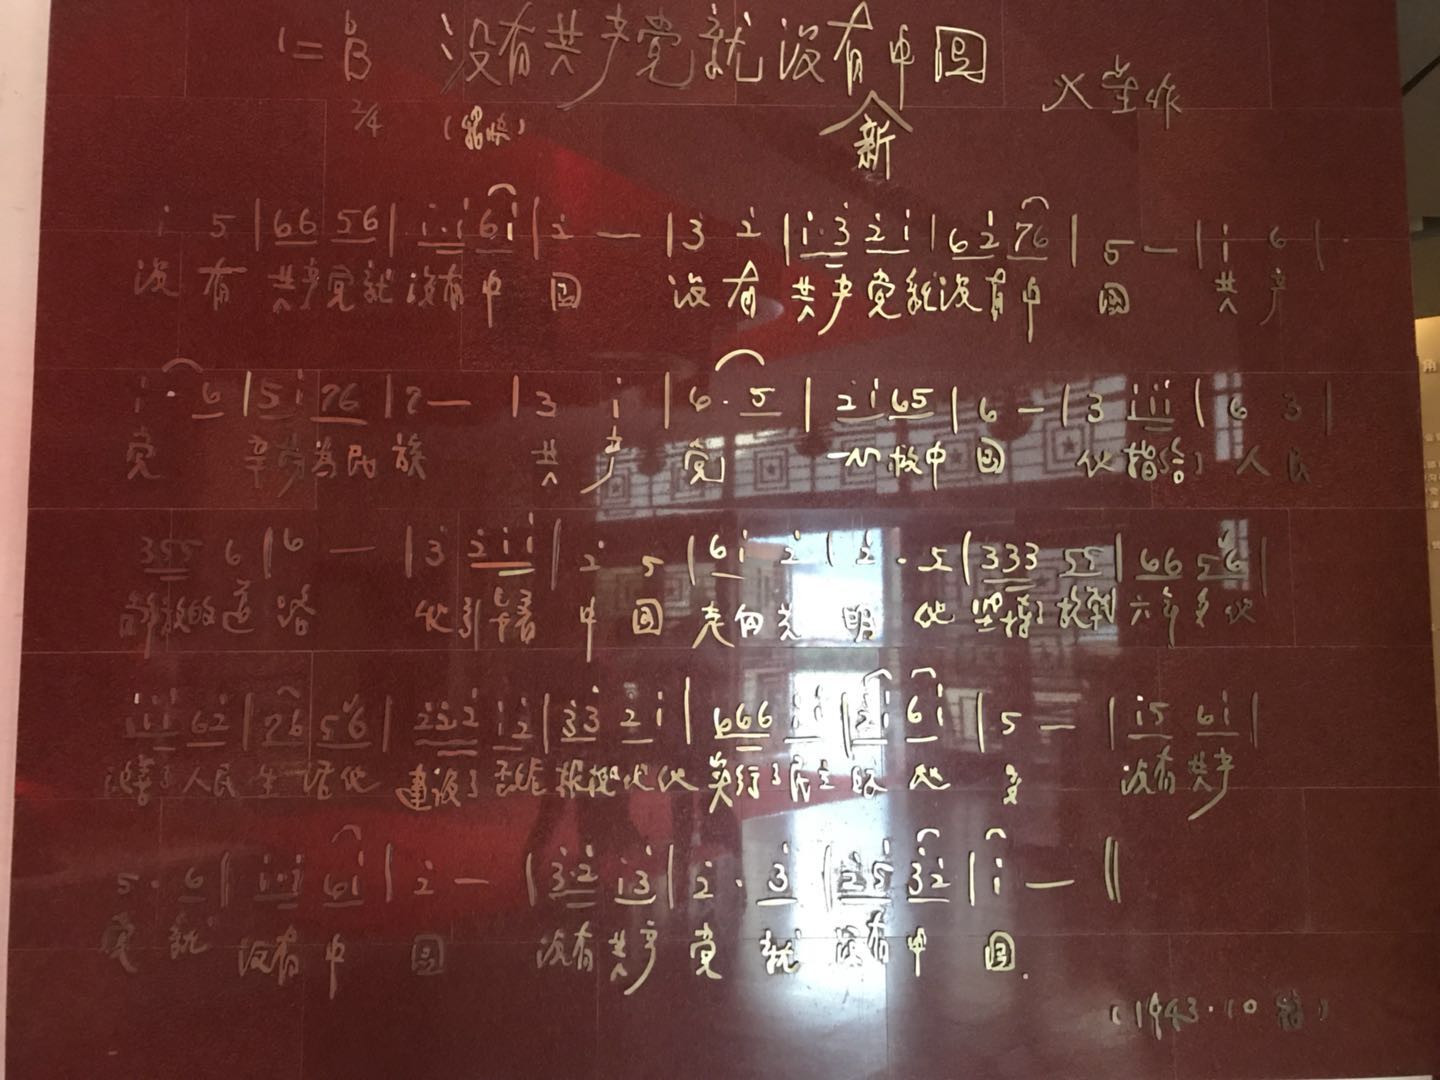 1=♭B 没有共产党就没有中国 火星作
2/4 (稍快) 新
i 5 | 66 56 | i·i 6i | 2 — | 3 2 | i·3 2i | 62 76 | 5 — | i 6 |
没有共产党就没有中国 没有共产党就没有中国 共产
i· 6 | 5i 76 | 2 — | 3 i | 6· 5 | 2i 65 | 6 — | 3 iii | 6 3 |
党 辛劳为民族 共产党 一心救中国 他指给了人民
355 6 | 6 — | 3 2ii | 2 5 | 6i 2 | 2· 5 | 333 55 | 66 56 |
解放的道路 他引导着中国走向光明 他坚持了抗战六年多 他
iii 62 | 76 56 | 222 i2 | 33 2i | 666 ii | 2i 6i | 5 — | i5 6i |
改善了人民生活 他建设了敌后根据地 他实行了民主好处多 没有共产
5· 6 | i·i 6i | 2 — | 3·2 i3 | 2· 3 | 25 32 | i — ||
党就没有中国 没有共产党就没有中国.
(1943·10